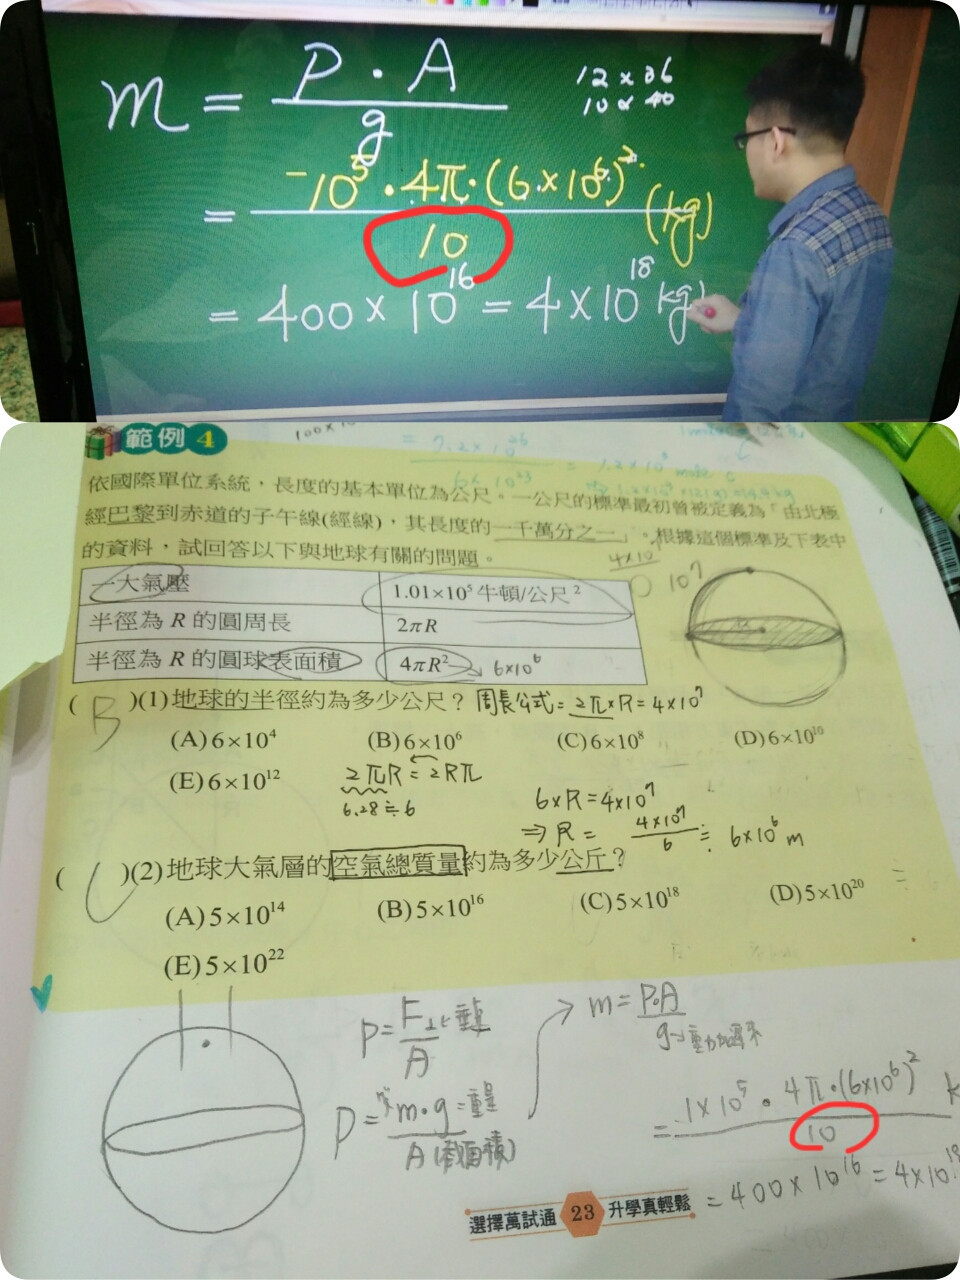 m = P · A / g
12 × 36
10 × 40
= 10⁵ · 4π · (6 × 10⁶)² / 10 (kg)
= 400 × 10¹⁶ = 4 × 10¹⁸ kg
範例 4
依國際單位系統，長度的基本單位為公尺。一公尺的標準最初曾被定義為「由北極
經巴黎到赤道的子午線(經線)，其長度的一千萬分之一」。根據這個標準及下表中
的資料，試回答以下與地球有關的問題。
4×10
10⁷
一大氣壓 1.01×10⁵ 牛頓/公尺²
半徑為 R 的圓周長 2πR
半徑為 R 的圓球表面積 4πR² 6×10⁶
( B )(1)地球的半徑約為多少公尺？ 周長公式 = 2π×R = 4×10⁷
(A) 6×10⁴ (B) 6×10⁶ (C) 6×10⁸ (D) 6×10¹⁰
(E) 6×10¹² 2πR = 2Rπ
6.28 ≒ 6
6×R = 4×10⁷
⇒ R = 4×10⁷ / 6 ≒ 6×10⁶ m
( C )(2)地球大氣層的空氣總質量約為多少公斤？
(A) 5×10¹⁴ (B) 5×10¹⁶ (C) 5×10¹⁸ (D) 5×10²⁰
(E) 5×10²²
P = F⊥ / A
m = P·A / g
P = m·g = 重量 / A (截面積)
= 1×10⁵ · 4π·(6×10⁶)² / 10
= 400 × 10¹⁶ = 4×10¹⁸
選擇萬試通 23 升學真輕鬆